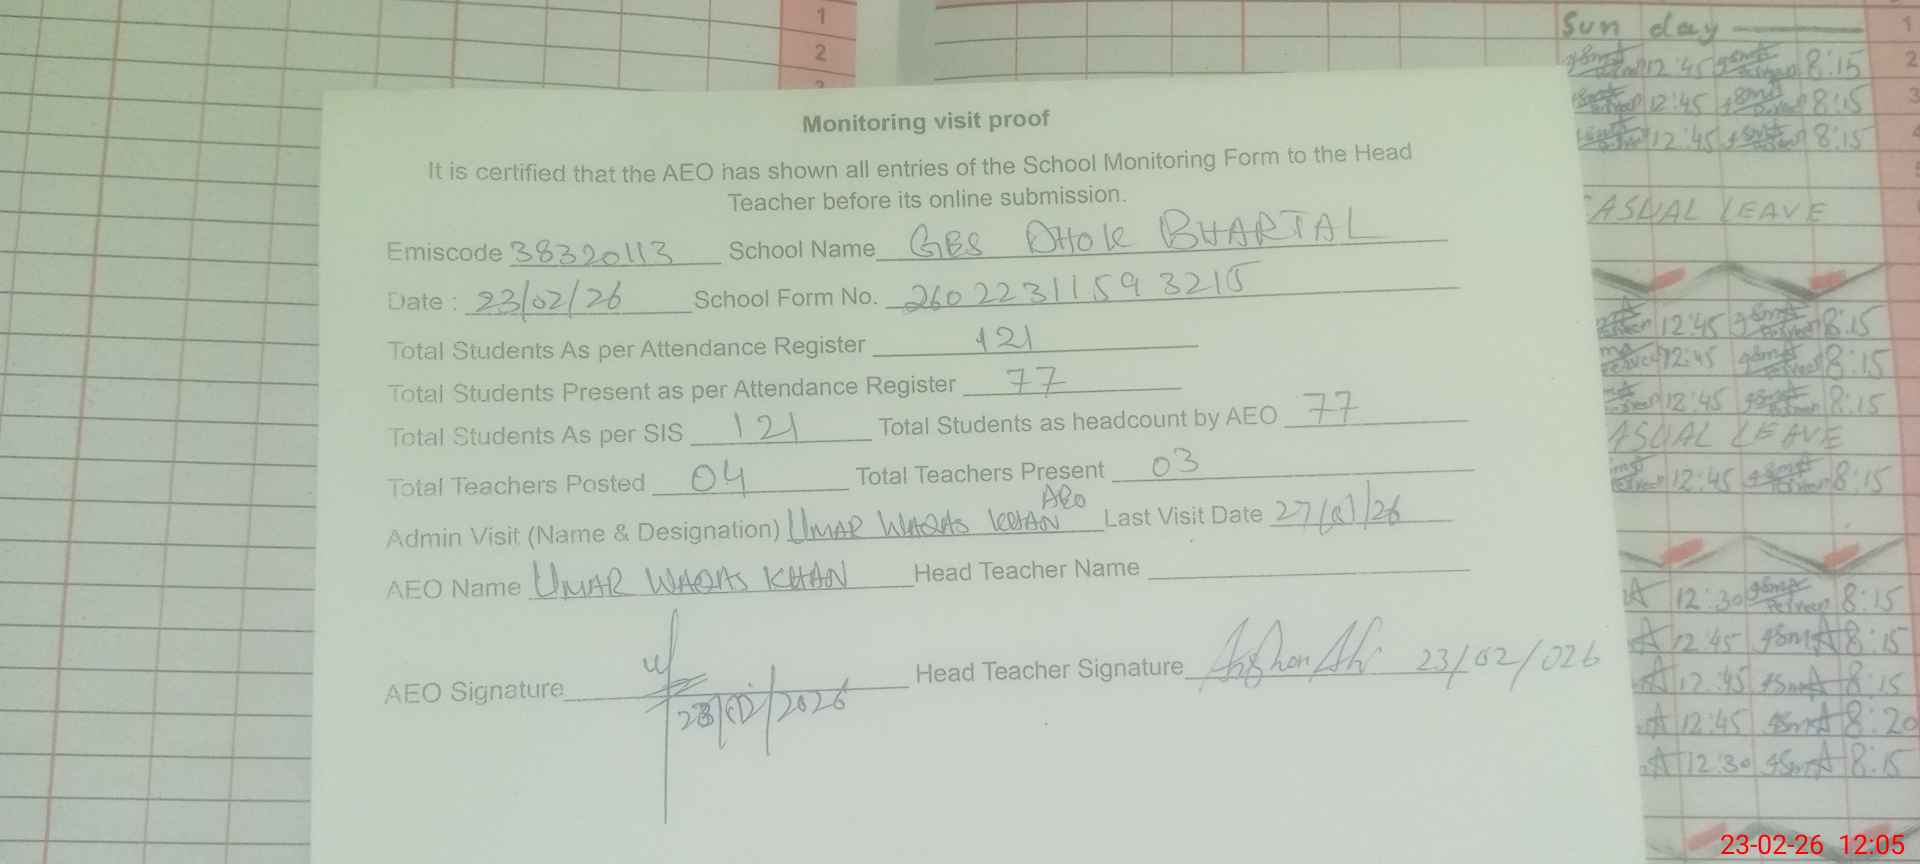 1
2
Sun day
1
12:45 8:15 2
12:45 8:15 3
12:45 8:15
CASUAL LEAVE
12:45 8:15
12:45 8:15
12:45 8:15
CASUAL LEAVE
12:45 8:15
12:30 8:15
12:45 8:15
12:45 8:15
12:45 8:20
12:30 8:15
Monitoring visit proof
It is certified that the AEO has shown all entries of the School Monitoring Form to the Head
Teacher before its online submission.
Emiscode 38320113 School Name GES DHOK BHARTAL
Date : 23/02/26 School Form No. 26022311593215
Total Students As per Attendance Register 121
Total Students Present as per Attendance Register 77
Total Students As per SIS 121 Total Students as headcount by AEO 77
Total Teachers Posted 04 Total Teachers Present 03
Admin Visit (Name & Designation) UMAR WAQAS KHAN AEO Last Visit Date 27/01/26
AEO Name UMAR WAQAS KHAN Head Teacher Name
AEO Signature 23/02/2026 Head Teacher Signature 23/02/026
23-02-26 12:05